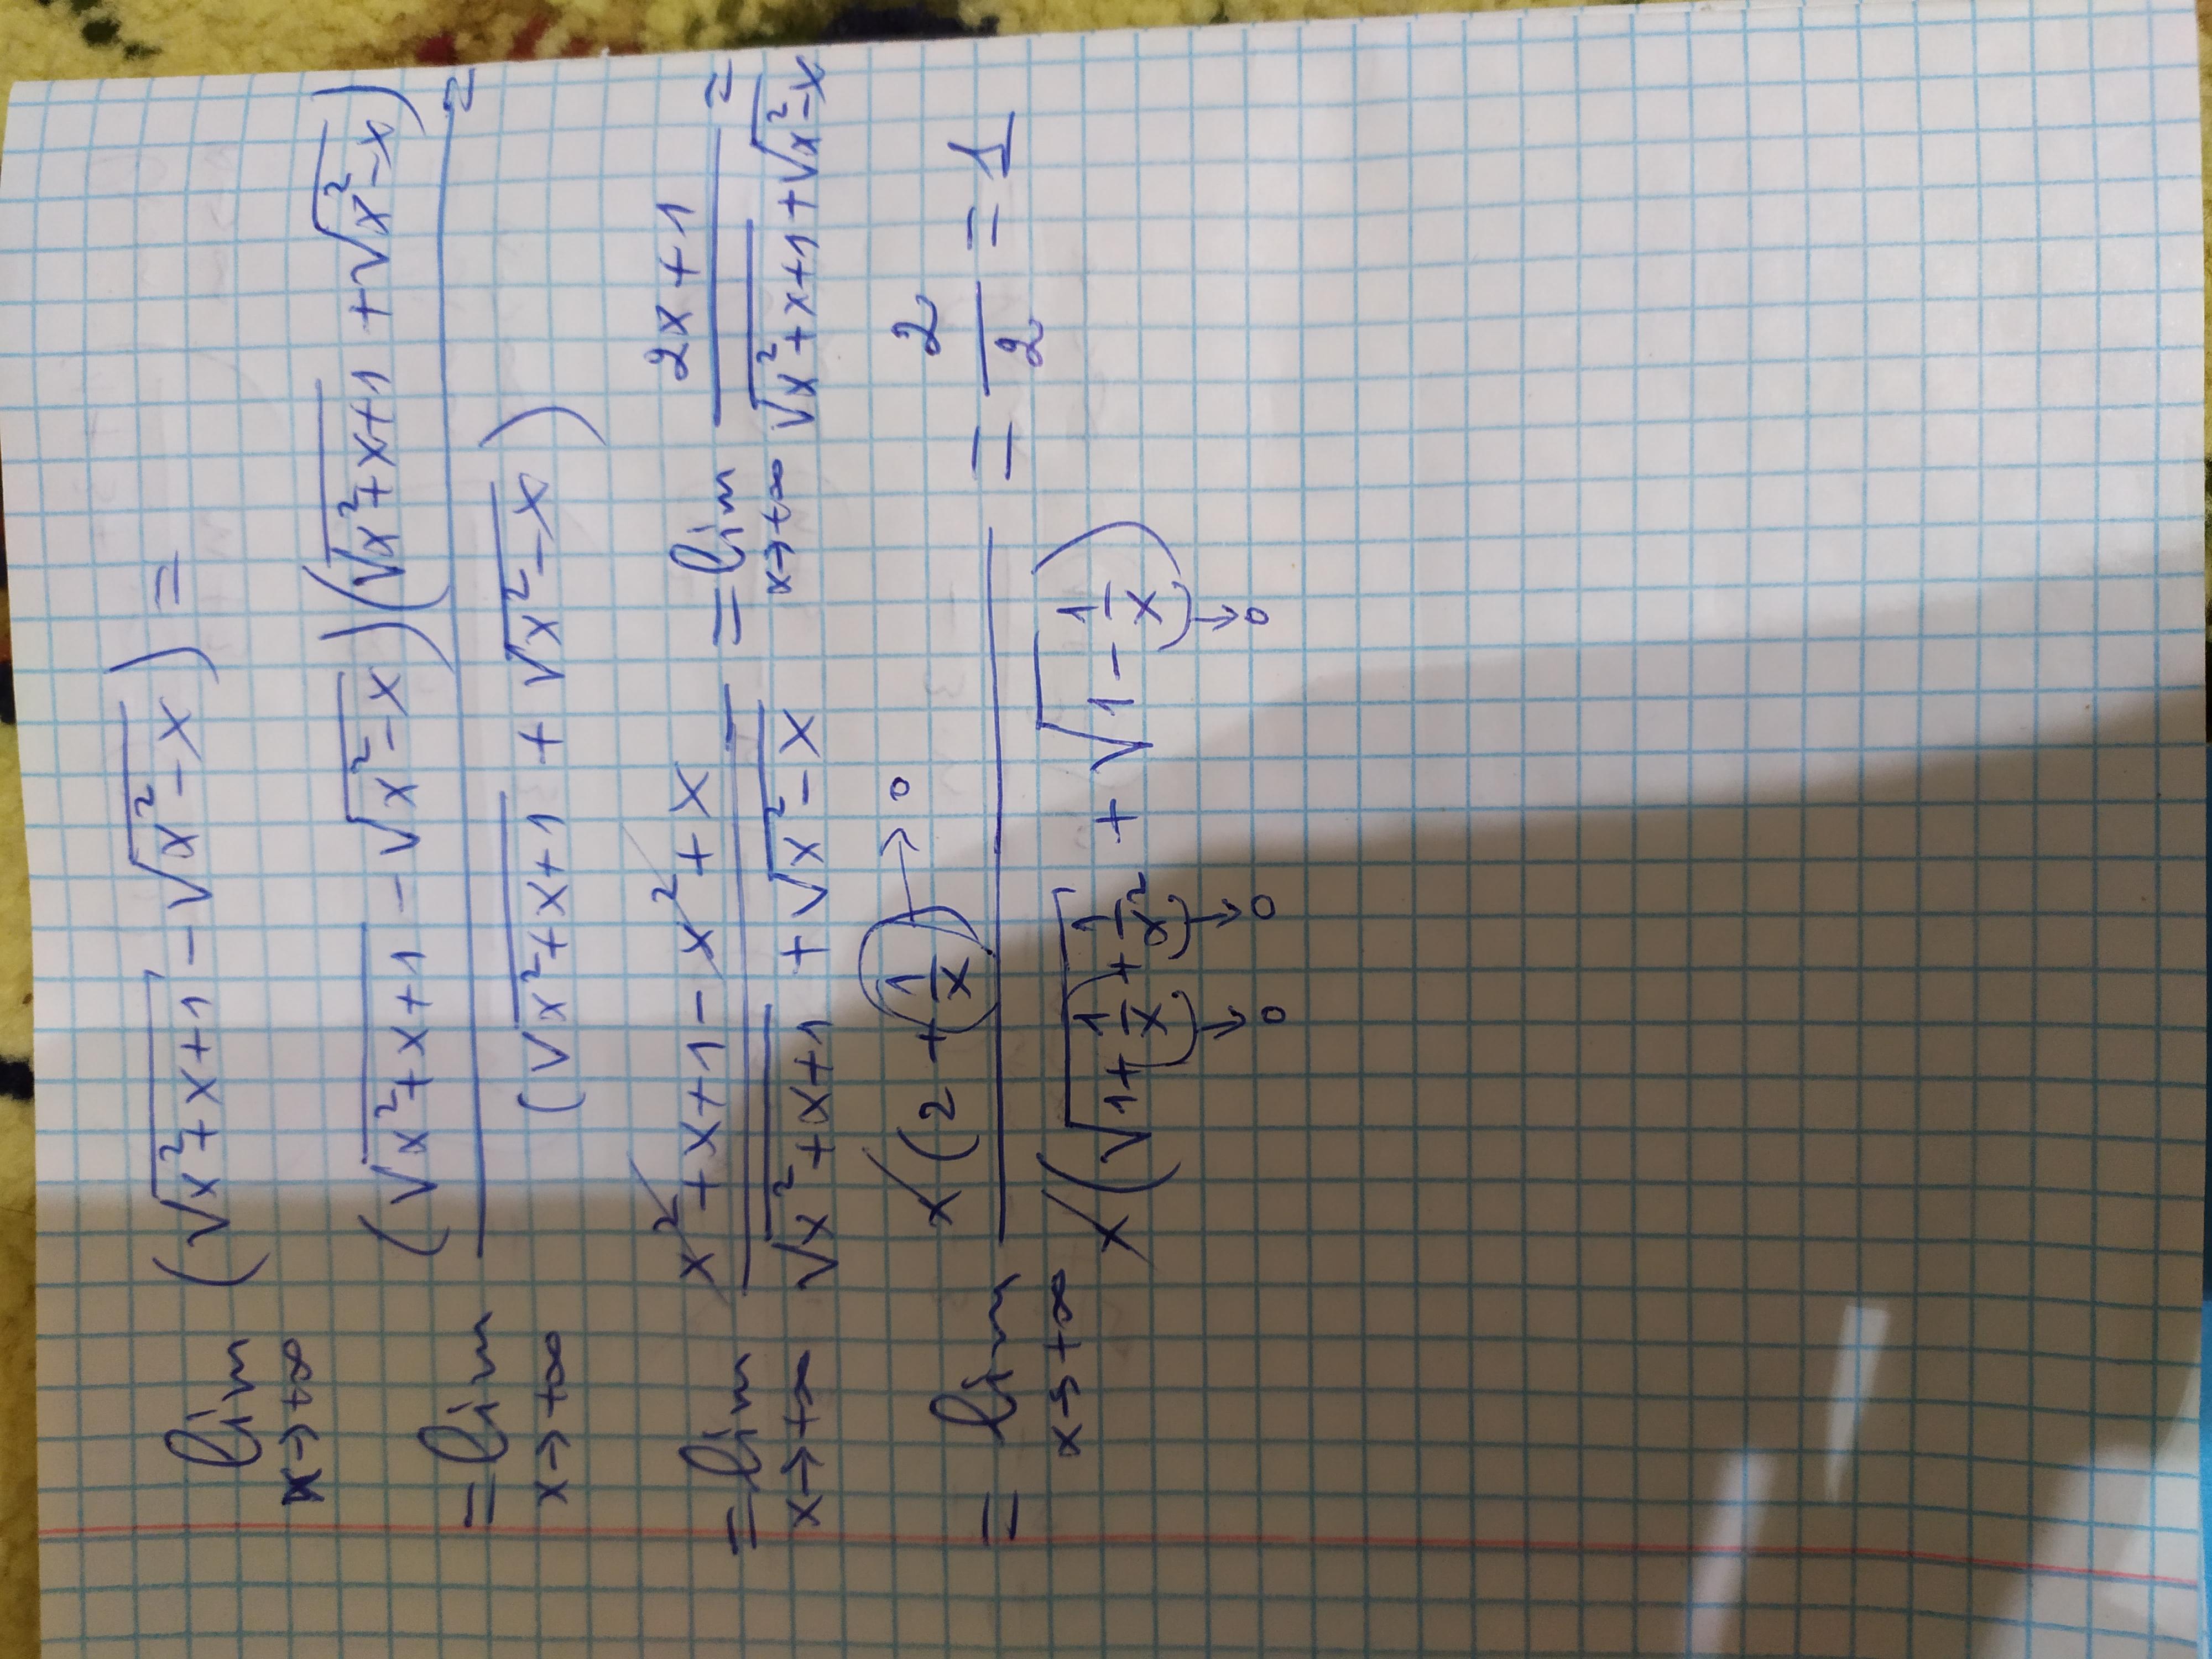 lim (√(x²+x+1) - √(x²-x)) =
x→+∞
= lim ((√(x²+x+1) - √(x²-x))(√(x²+x+1) + √(x²-x))) / (√(x²+x+1) + √(x²-x)) =
x→+∞
= lim (x²+x+1-x²+x) / (√(x²+x+1) + √(x²-x)) = lim (2x+1) / (√(x²+x+1) + √(x²-x)) =
x→+∞ x→+∞
= lim x(2 + (1/x)→0) / x(√(1+1/x+1/x²) + √(1-1/x)) = 2/2 = 1
x→+∞
→0 →0 →0